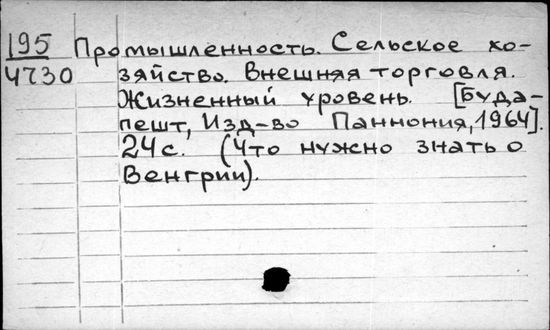 195 Промышленность. Сельское хо-
4730 зяйство. Внешняя торговля.
Жизненный уровень. [Буда-
пешт, Изд-во Паннония, 1964].
24с. (Что нужно знать о
Венгрии).